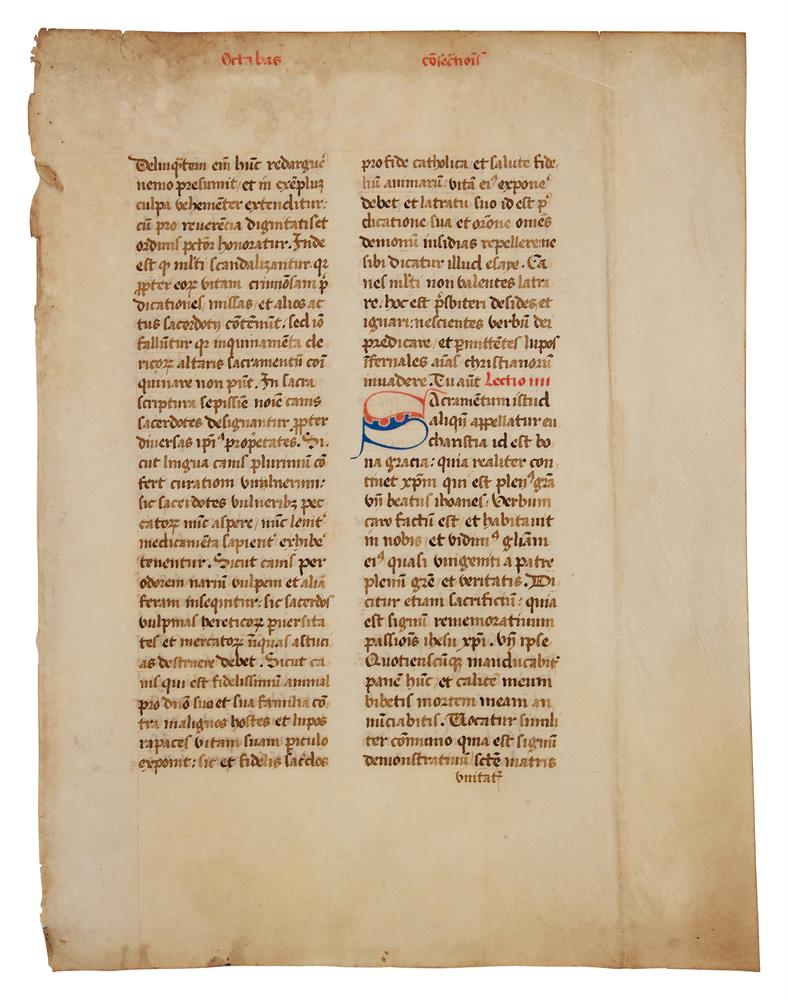 Octabas consecrõis
Delinq̃tem em̃ hũc redargue᷑
nemo presumit et in exẽpluz
culpa vehementer extenditur:
cũ pro reverẽcia dignitatis et
ordinis pctõr honoratur. Inde
est qꝫ mlti scandalizantur. qꝛ
ꝓpter eoꝝ vitam criminosam p̃
dicationes, missas et alios ac
tus sacerdotij cõtẽnũt. sed iõ
fallũtur qꝛ inquinamẽta cle
ricoꝝ altaris sacramentũ coĩ
quinare non pñt. In sacra
scriptura sepissie noĩe canis
sacerdotes designantur ꝓpter
diversas ipiꝰ proprĩetates. Si
cut lingua canis plurimũ cõ
fert curationi vulnerum:
sic sacerdotes vulneribꝫ pec
catoꝝ nũc aspere, nũc lenit᷑
medicamẽta sapient᷑ exhibe᷑
tenentur. Sicut canis per
odorem nariũ vulpem et aliã
feram insequitur: sic sacerdos
vulpinas hereticoꝝ ꝑversita
tes et mercatoꝝ iñquas astuci
as destruere debet. Sicut ca
nis qui est fidelissimũ animal
pro dnõ suo et sua familia cõ
tra malignos hostes et lupos
rapaces vitam suam ꝑiculo
exponit: sic et fidelis sac̃dos
pro fide catholica et salute fide
liũ animarũ vitã eiꝰ expone᷑
debet et latratu suo id est p̃
dicatione sua et orõne omẽs
demonũ insidias repellere ne
sibi dicatur illud esaye. Ca
nes mlti non valentes latra
re. hoc est p̃sbiteri desides et
ignari: nescientes verbũ dei
predicare et ꝑmittẽtes lupos
ĩfernales aĩas christianorũ
invadere. Tu aũt Lectio iiii
Sacramẽtum istud
aliqñ appellatur eu
charistia id est bo
na gracia: quia realiter con
tinet xp̃m qui est plenꝰ grã
vñ beatus ihoanes. Verbum
caro factũ est et habitavit
in nobis et vidimꝰ gliãm
eiꝰ quasi unigeniti a patre
plenũ grẽ et veritatis. Di
citur etiam sacrificiũ: quia
est signũ rememorativum
passiõis ihesu xp̃i. vñ ipse
Quotienscũqꝫ manducabit᷑
panẽ hũc et calicẽ meum
bibetis mortem meam an
nũciabitis. Vocatur simili
ter cõmunio quia est signũ
demonstrativũ scte matris
unitat᷑